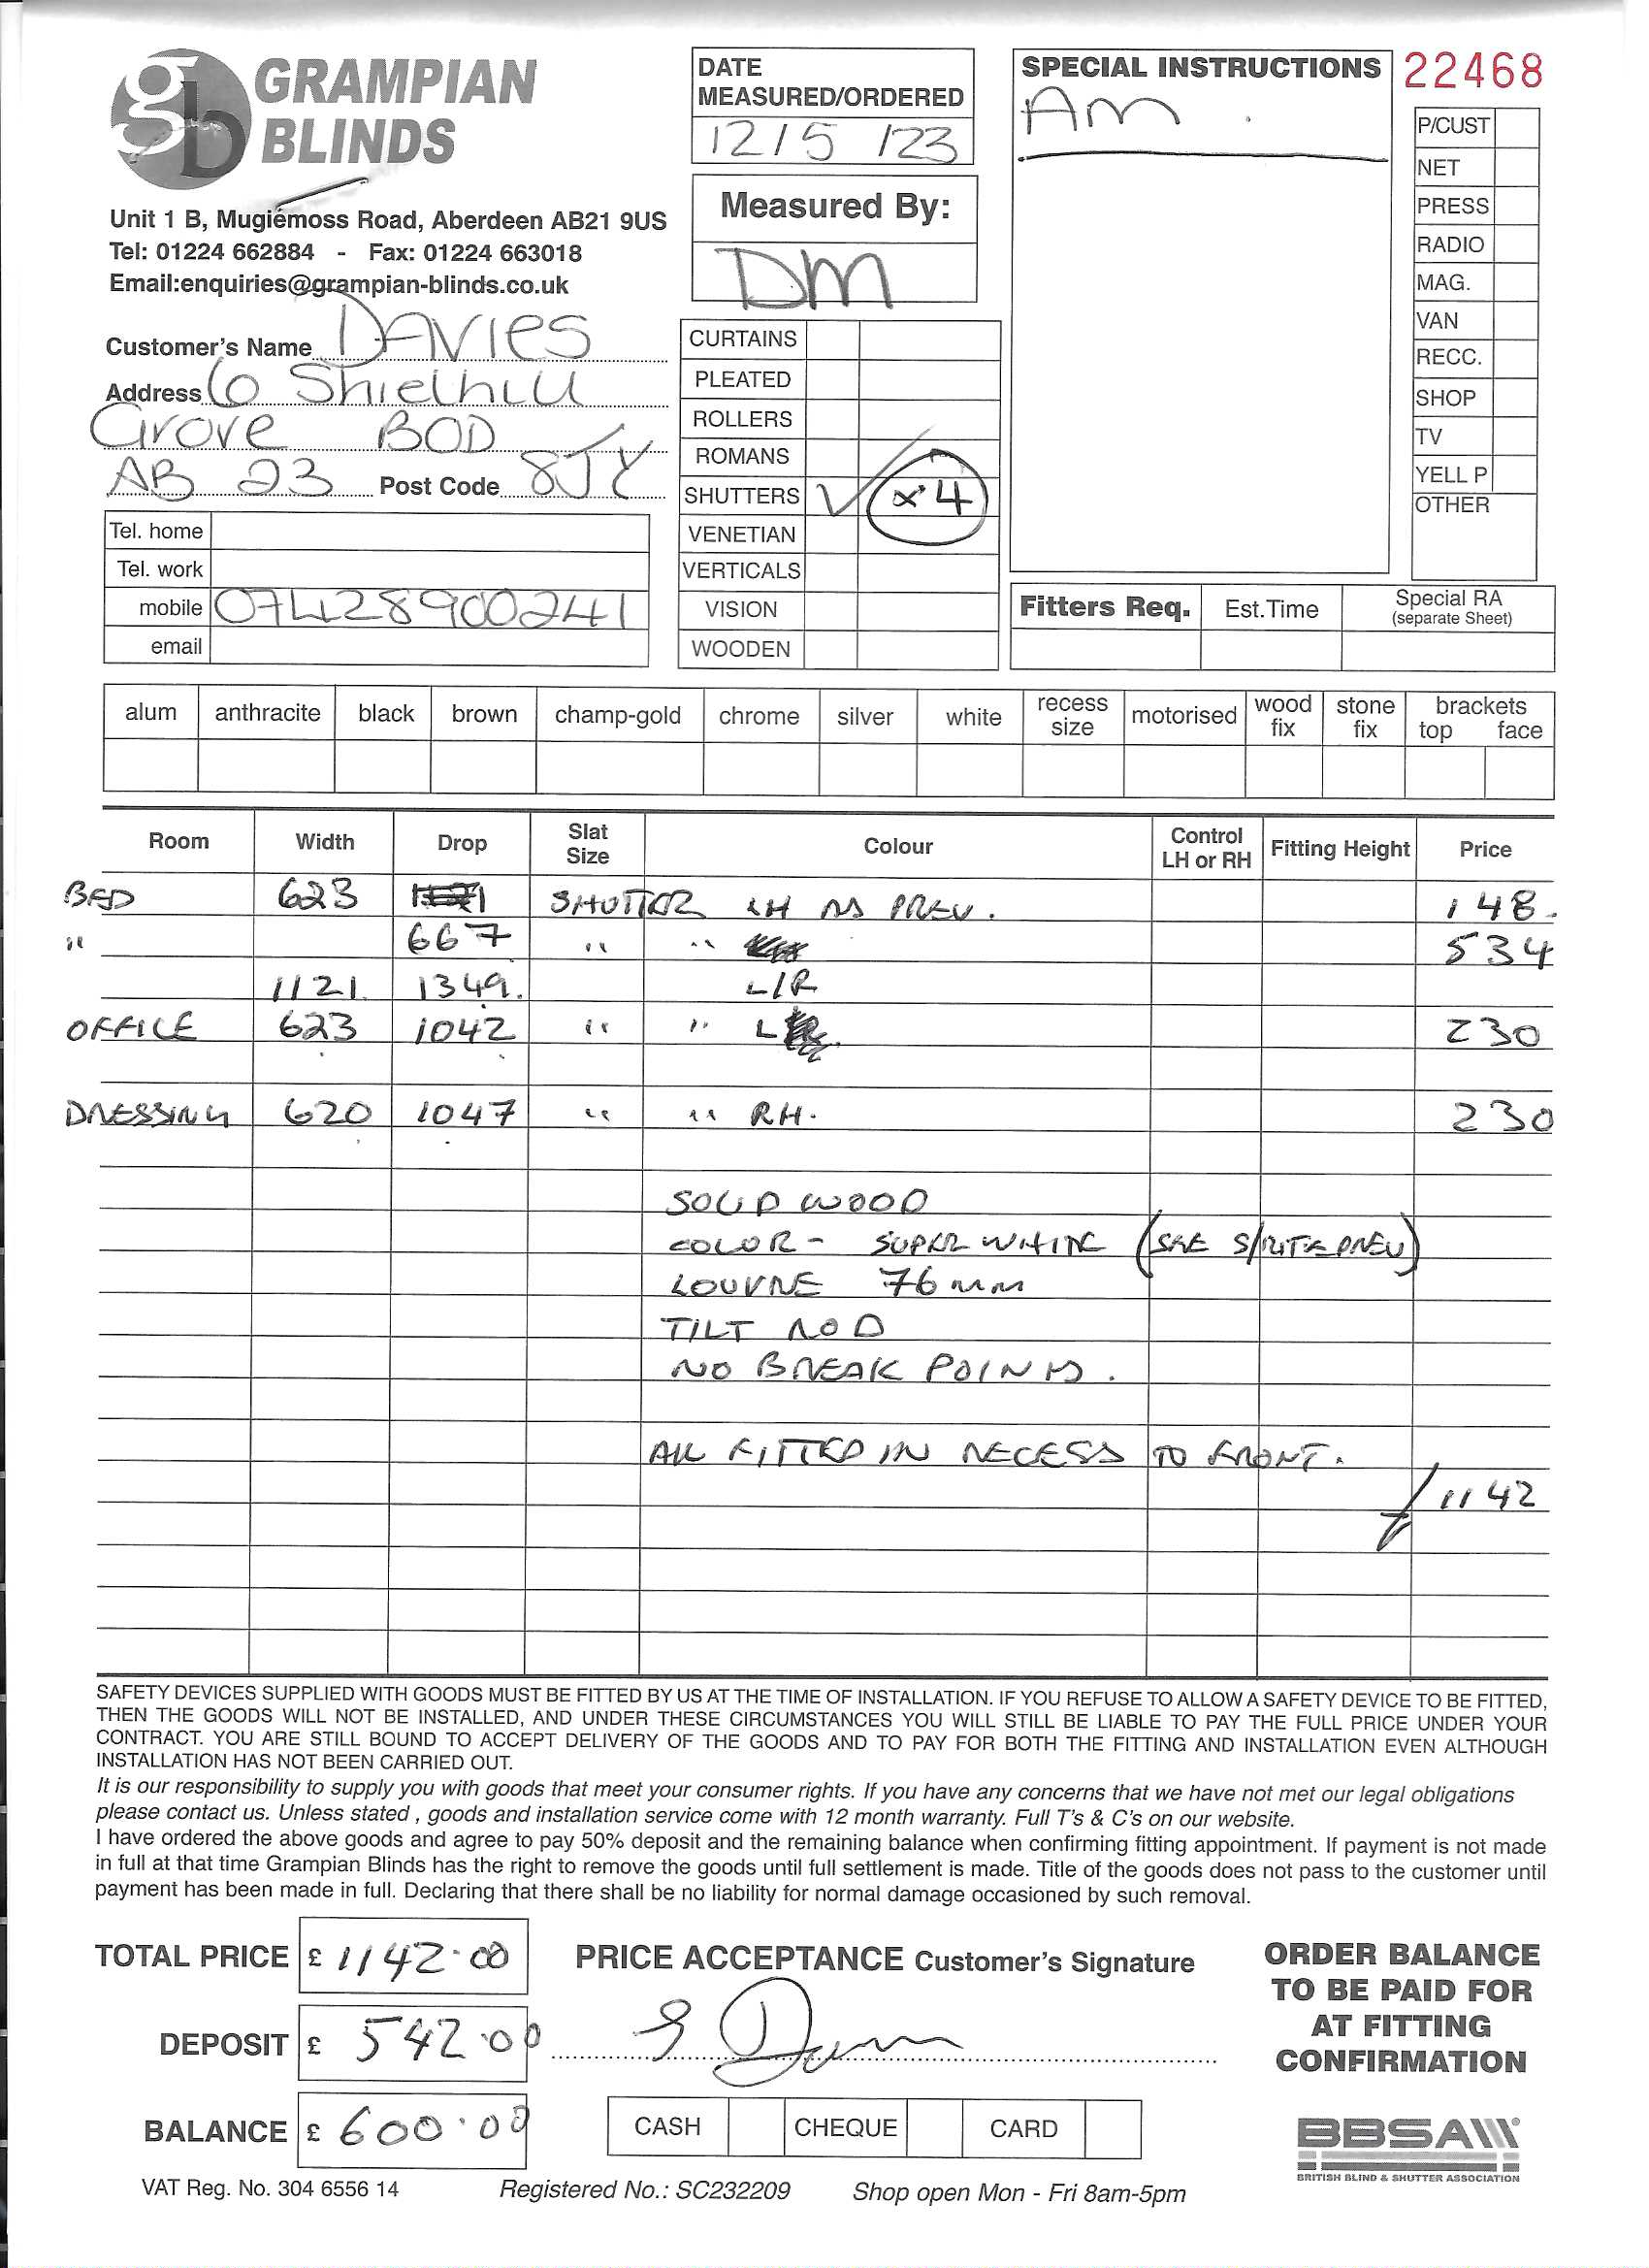 GRAMPIAN
BLINDS
Unit 1 B, Mugiemoss Road, Aberdeen AB21 9US
Tel: 01224 662884 - Fax: 01224 663018
Email:enquiries@grampian-blinds.co.uk
DATE
MEASURED/ORDERED
12/5/23
Measured By:
DM
SPECIAL INSTRUCTIONS
AM
22468
P/CUST
NET
PRESS
RADIO
MAG.
VAN
RECC.
SHOP
TV
YELL P
OTHER
Customer's Name DAVIES
Address 6 Shielhill
Grove BOD
AB 23 Post Code 8JY
Tel. home
Tel. work
mobile 07428900241
email
CURTAINS
PLEATED
ROLLERS
ROMANS
SHUTTERS ✓ x4
VENETIAN
VERTICALS
VISION
WOODEN
Fitters Req. Est.Time Special RA
(separate Sheet)
alum anthracite black brown champ-gold chrome silver white recess size motorised wood fix stone fix brackets top face
Room Width Drop Slat Size Colour Control LH or RH Fitting Height Price
BED 623 SHUTTER LH AS PREV. 148.
" 667 " " 534
1121 1349. L/R
OFFICE 623 1042 " " L 230
DRESSING 620 1047 " " RH. 230
SOLID WOOD
COLOR - SUPER WHITE (SEE S/RITE PREV)
LOUVRE 76mm
TILT ROD
NO BREAK POINTS.
ALL FITTED IN RECESS TO FRONT.
1142
SAFETY DEVICES SUPPLIED WITH GOODS MUST BE FITTED BY US AT THE TIME OF INSTALLATION. IF YOU REFUSE TO ALLOW A SAFETY DEVICE TO BE FITTED,
THEN THE GOODS WILL NOT BE INSTALLED, AND UNDER THESE CIRCUMSTANCES YOU WILL STILL BE LIABLE TO PAY THE FULL PRICE UNDER YOUR
CONTRACT. YOU ARE STILL BOUND TO ACCEPT DELIVERY OF THE GOODS AND TO PAY FOR BOTH THE FITTING AND INSTALLATION EVEN ALTHOUGH
INSTALLATION HAS NOT BEEN CARRIED OUT.
It is our responsibility to supply you with goods that meet your consumer rights. If you have any concerns that we have not met our legal obligations
please contact us. Unless stated , goods and installation service come with 12 month warranty. Full T's & C's on our website.
I have ordered the above goods and agree to pay 50% deposit and the remaining balance when confirming fitting appointment. If payment is not made
in full at that time Grampian Blinds has the right to remove the goods until full settlement is made. Title of the goods does not pass to the customer until
payment has been made in full. Declaring that there shall be no liability for normal damage occasioned by such removal.
TOTAL PRICE £ 1142.00
DEPOSIT £ 542.00
BALANCE £ 600.00
PRICE ACCEPTANCE Customer's Signature
CASH CHEQUE CARD
ORDER BALANCE
TO BE PAID FOR
AT FITTING
CONFIRMATION
BBSA
BRITISH BLIND & SHUTTER ASSOCIATION
VAT Reg. No. 304 6556 14 Registered No.: SC232209 Shop open Mon - Fri 8am-5pm